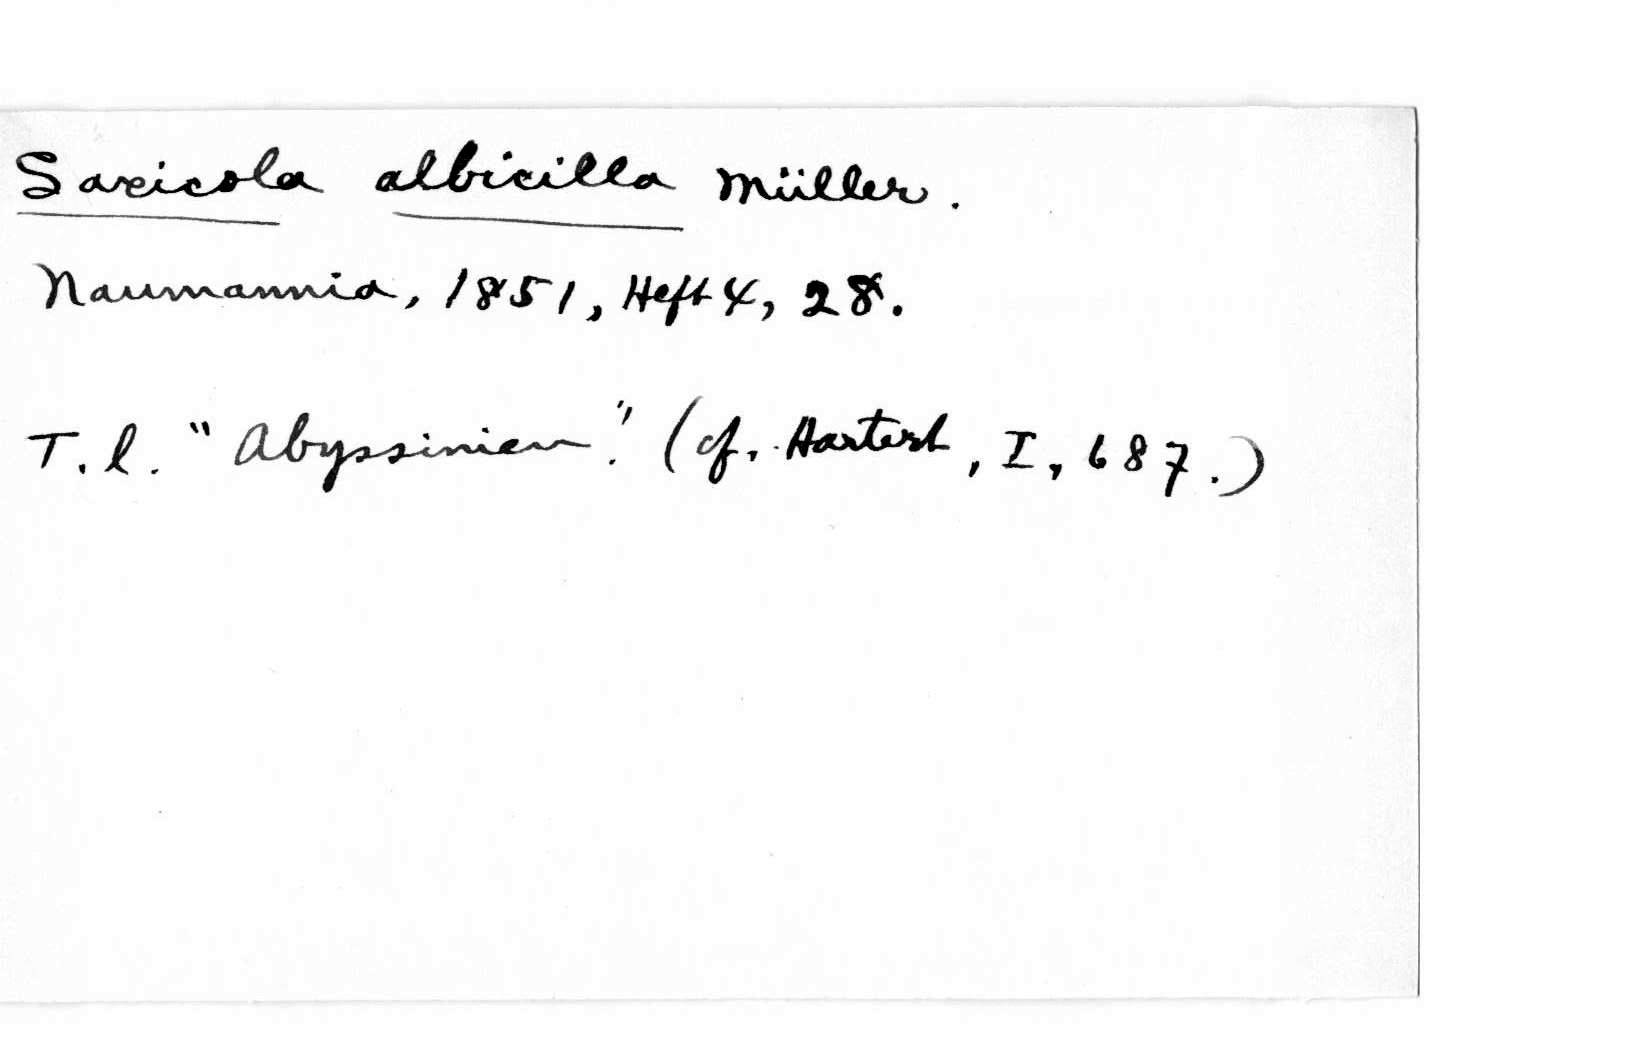 Saxicola albicilla Müller.
Naumannia, 1851, Heft 4, 28.
T. l. "Abyssinien." (cf. Hartert, I, 687.)